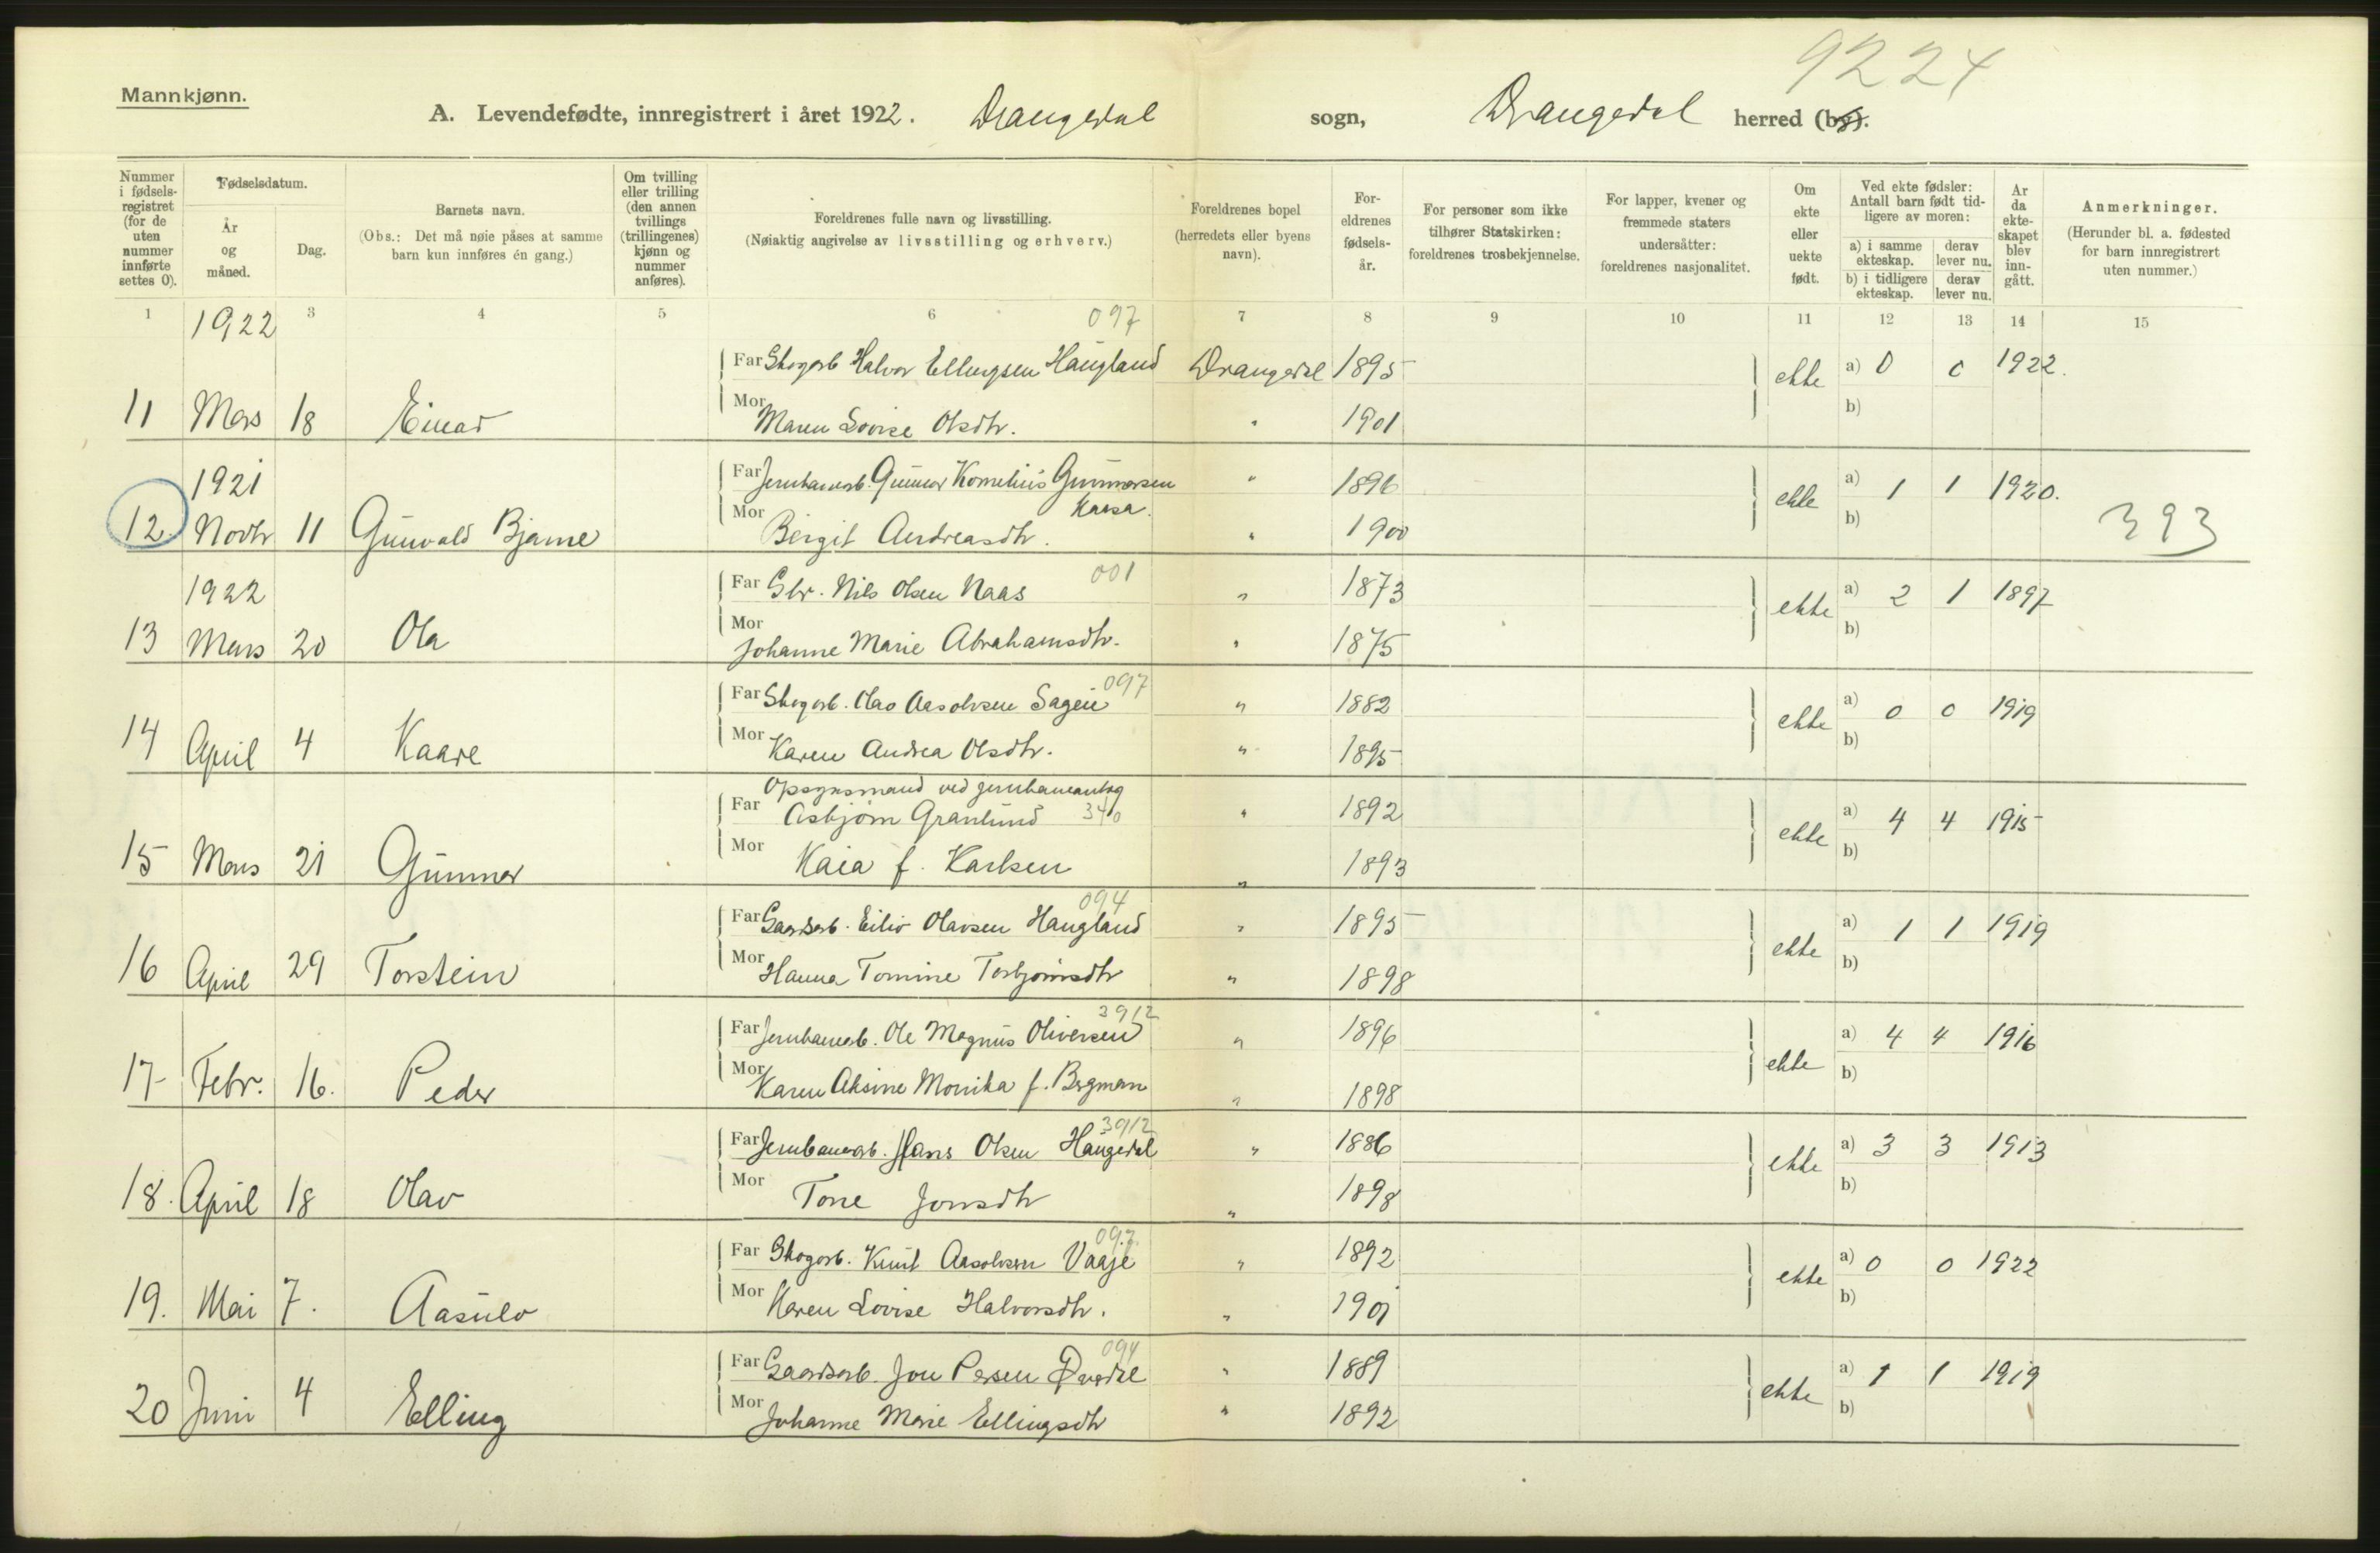 9224
Mannkjønn.
A. Levendefødte, innregistrert i året 1922. Drangedal sogn, Drangedal herred (by).
Nummer i fødsels-registret (for de uten nummer innførte settes 0).
Fødselsdatum.
År og måned.
Dag.
Barnets navn.
(Obs.: Det må nøie påses at samme barn kun innføres én gang.)
Om tvilling eller trilling (den annen tvillings (trillingenes) kjønn og nummer anføres).
Foreldrenes fulle navn og livsstilling.
(Nøiaktig angivelse av livsstilling og erhverv.)
Foreldrenes bopel (herredets eller byens navn).
For-eldrenes fødsels-år.
For personer som ikke tilhører Statskirken: foreldrenes trosbekjennelse.
For lapper, kvener og fremmede staters undersåtter: foreldrenes nasjonalitet.
Om ekte eller uekte født.
Ved ekte fødsler: Antall barn født tid-ligere av moren:
a) i samme ekteskap. derav lever nu.
b) i tidligere ekteskap. derav lever nu.
År da ekte-skapet blev inn-gått.
Anmerkninger.
(Herunder bl. a. fødested for barn innregistrert uten nummer.)
1 3 4 5 6 7 8 9 10 11 12 13 14 15
1922 097
Far Skogarb Halvor Ellingsen Haugland Drangedal 1895 ekte a) 0 0 1922.
11 Mars 18 Einar Mor Maren Lovise Olsdtr. " 1901 b)
1921 Far Jernbanearb. Gunnar Kornelius Gunnarsen Kaasa. " 1896 ekte a) 1 1 1920.
12 Novbr 11 Gunvald Bjarne Mor Bergit Andreasdtr. " 1900 b) 393
1922 Far Gbr. Nils Olsen Naas 001 " 1873 ekte a) 2 1 1897
13 Mars 20 Ola Mor Johanne Marie Abrahamsdtr. " 1875 b)
Far Skogarb. Olav Aasolvsen Sagen 097 " 1882 ekte a) 0 0 1919
14 April 4 Kaare Mor Karen Andrea Olsdtr. " 1895 b)
Opsynsmand ved jernbaneanlæg
Far Asbjørn Granlund 340 " 1892 ekte a) 4 4 1915
15 Mars 21 Gunnar Mor Kaia f. Karlsen " 1893 b)
094
Far Gaardsarb. Eiliv Olavsen Haugland " 1895 ekte a) 1 1 1919
16 April 29 Torstein Mor Hanna Tomine Torbjørnsdtr " 1898 b)
3912
Far Jernbanearb. Ole Magnus Oliversen " 1896 ekte a) 4 4 1916
17 Febr. 16. Peder Mor Karen Aksine Monika f. Bergman " 1898 b)
3912
Far Jernbanearb. Hans Olsen Haugedal " 1886 ekte a) 3 3 1913
18. April 18 Olav Mor Tone Jonsdtr " 1898 b)
097.
Far Skogarb. Knut Aasolvsen Vaaje " 1892 ekte a) 0 0 1922
19. Mai 7. Aasulv Mor Karen Lovise Halvorsdtr. " 1901 b)
094
Far Gaardsarb. Jon Persen " 1889 ekte a) 1 1 1919
20 Juni 4 Elling Mor Johanne Marie Ellingsdtr " 1892 b)